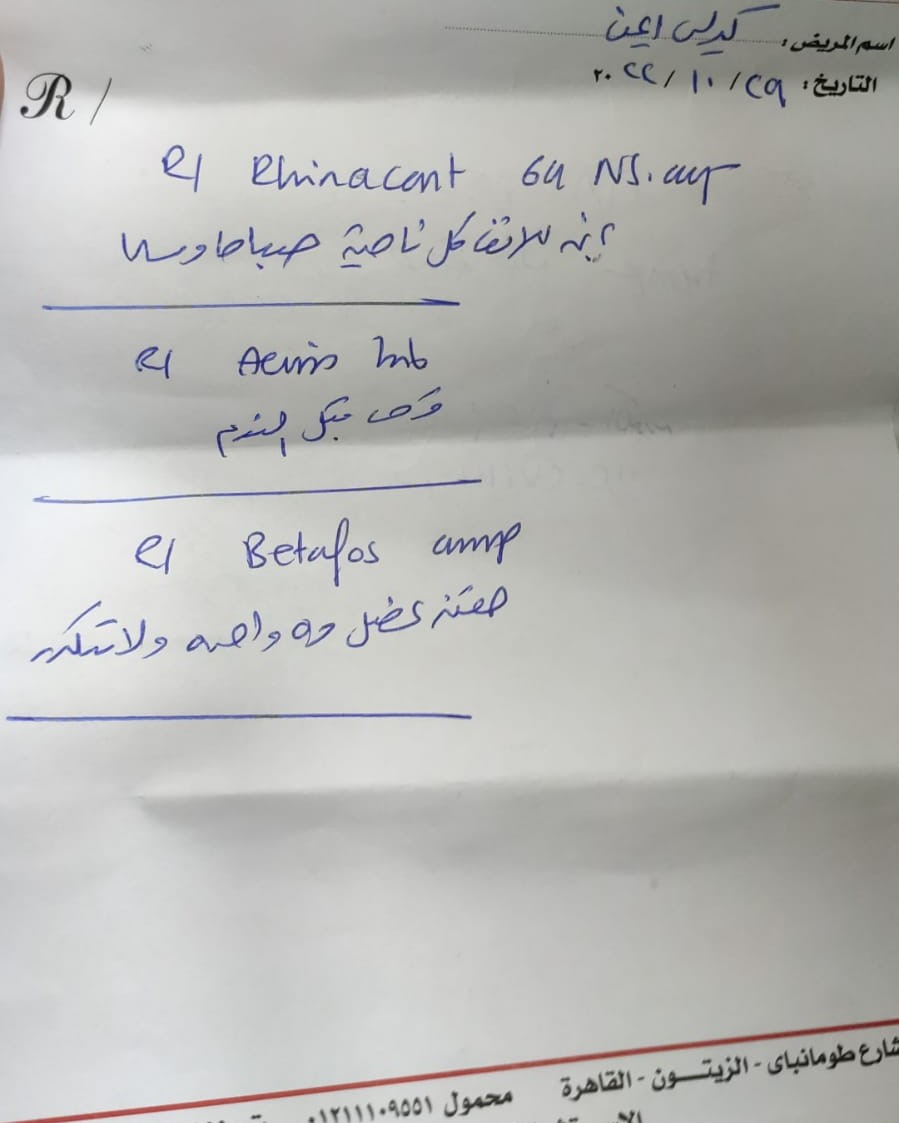 اسم المريض: كيرلس ايمن
التاريخ: ٢٩/ ١٠ / ٢٠٢٢
R/
R/ Rhinacort 64 NS.
بخه للانف كل ناحية صباحا ومساء
R/ Aerius tab
قرص قبل النوم
R/ Betafos amp
حقنة عضل مرة واحده ولا تتكرر
شارع طومانباى - الزيتــون - القاهرة محمول ٠١٢١١١٠٩٥٥١